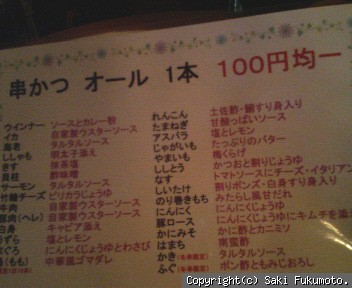 串かつ オール 1本 100円均一
ウインナー ソースとカレー粉
イカ 自家製ウスターソース
海老 タルタルソース
ししゃも 明太子添え
きす 抹茶塩
貝柱 自家製ウスターソース
サーモン タルタルソース
竹輪チーズ ピリカラじょうゆ
自家製ウスターソース
豚肉(ヘレ) 自家製ウスターソース
キャビア添え
うずら 塩とレモン
にんにくじょうゆとわさび
(もも) 中華風ゴマダレ
れんこん 土佐酢・鯛すり身入り
たまねぎ 甘酸っぱいソース
アスパラ 塩とレモン
じゃがいも たっぷりのバター
やまいも 梅くらげ
ししとう かつおと割りじょうゆ
なす トマトソースにチーズ・イタリアン
しいたけ 割りポンズ・白身すり身入り
のり巻きもち みたらし風甘だれ
にんにく にんにくじょうゆ
豚ロース にんにくじょうゆにキムチを添
かにみそ かに酢とカニミソ
はまち 南蛮酢
かき タルタルソース
ふぐ ポン酢ともみじおろし
Copyright(c) Saki Fukumoto.